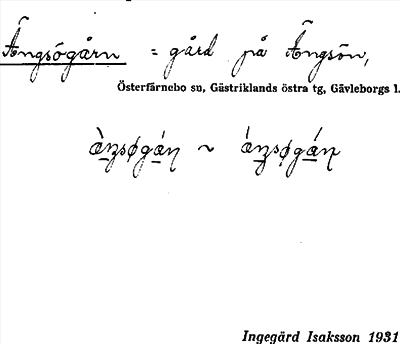 Ängsögårn = gård på Ängsön,
Österfärnebo sn, Gästriklands östra tg, Gävleborgs l.
Ingegärd Isaksson 1931